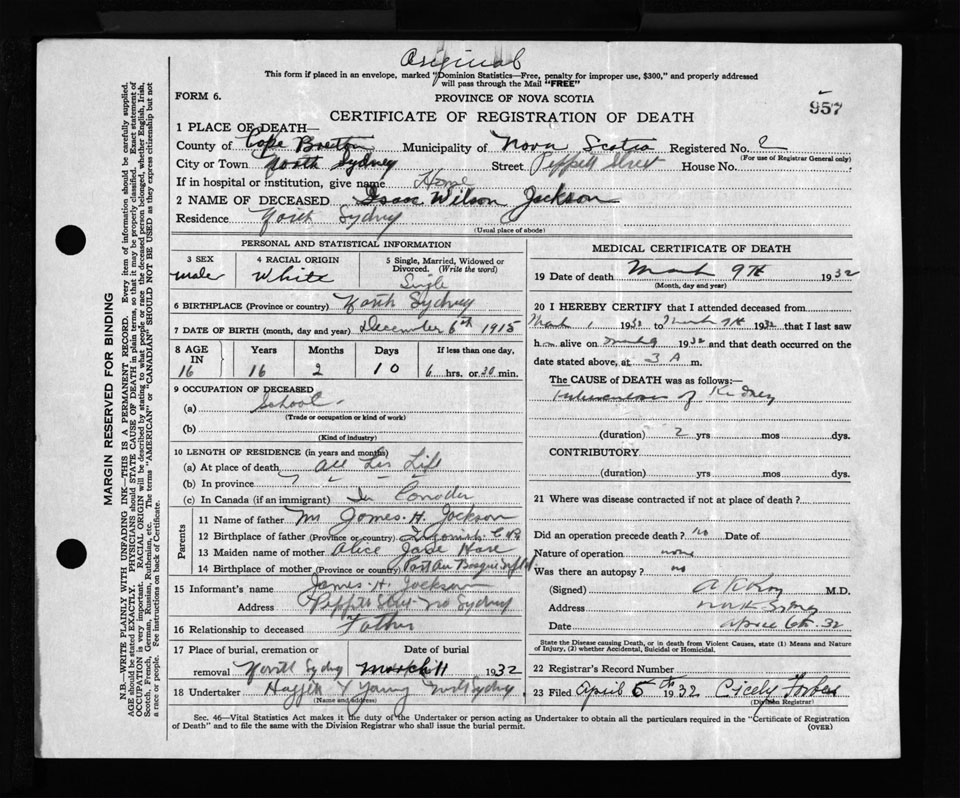 Original
This form if placed in an envelope, marked "Dominion Statistics—Free, penalty for improper use, $300," and properly addressed
will pass through the Mail "FREE"
FORM 6.
PROVINCE OF NOVA SCOTIA
957
CERTIFICATE OF REGISTRATION OF DEATH
1 PLACE OF DEATH—
County of Cape Breton Municipality of Nova Scotia Registered No. 2
(For use of Registrar General only)
City or Town North Sydney Street Peppett Street House No.
If in hospital or institution, give name Home
2 NAME OF DECEASED Isaac Wilson Jackson
Residence North Sydney
(Usual place of abode)
PERSONAL AND STATISTICAL INFORMATION
3 SEX 4 RACIAL ORIGIN 5 Single, Married, Widowed or
Divorced. (Write the word)
male White Single
6 BIRTHPLACE (Province or country) North Sydney
7 DATE OF BIRTH (month, day and year) December 6th 1915
8 AGE IN Years Months Days If less than one day,
16 16 2 10 6 hrs. or 30 min.
9 OCCUPATION OF DECEASED
(a) School
(Trade or occupation or kind of work)
(b)
(Kind of industry)
10 LENGTH OF RESIDENCE (in years and months)
(a) At place of death all his Life
(b) In province
(c) In Canada (if an immigrant) In Canada
Parents
11 Name of father Mr James H. Jackson
12 Birthplace of father (Province or country)
13 Maiden name of mother Alice Jane
14 Birthplace of mother (Province or country) Port Au Basque Nfld
15 Informant's name James H. Jackson
Address Peppett Street No Sydney
16 Relationship to deceased Father
17 Place of burial, cremation or Date of burial
removal North Sydney March 11 1932
18 Undertaker Young North Sydney
(Name and address)
MEDICAL CERTIFICATE OF DEATH
19 Date of death March 9th 1932
(Month, day and year)
20 I HEREBY CERTIFY that I attended deceased from
March 1 1932 to March 9th 1932 that I last saw
him alive on March 9 1932 and that death occurred on the
date stated above, at 3 A m.
The CAUSE of DEATH was as follows:—
Tuberculosis of Kidney
(duration) 2 yrs mos dys.
CONTRIBUTORY
(duration) yrs mos dys.
21 Where was disease contracted if not at place of death?
Did an operation precede death? no Date of
Nature of operation none
Was there an autopsy? no
(Signed) M.D.
Address North Sydney
Date April 6th 32
State the Disease causing Death, or in death from Violent Causes, state (1) Means and Nature
of Injury, (2) whether Accidental, Suicidal or Homicidal.
22 Registrar's Record Number
23 Filed April 5th 1932 Cicely Forbes
(Division Registrar)
Sec. 46—Vital Statistics Act makes it the duty of the Undertaker or person acting as Undertaker to obtain all the particulars required in the "Certificate of Registration
of Death" and to file the same with the Division Registrar who shall issue the burial permit.
(OVER)
MARGIN RESERVED FOR BINDING
N.B.—WRITE PLAINLY WITH UNFADING INK—THIS IS A PERMANENT RECORD. Every item of information should be carefully supplied.
AGE should be stated EXACTLY. PHYSICIANS should STATE CAUSE OF DEATH in plain terms, so that it may be properly classified. Exact statement of
OCCUPATION is very important. RACIAL ORIGIN will be described by stating to what people or race the deceased person belonged, whether English, Irish,
Scotch, French, German, Russian, Ruthenian, etc. The terms "AMERICAN" or "CANADIAN" SHOULD NOT BE USED as they express citizenship but not
a race or people. Fee instructions on back of Certificate.